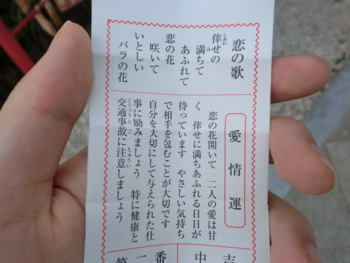 恋の歌
倖せの
しあわ
満ちて
あふれて
恋の花
咲いて
いとしい
バラの花
愛情運
恋の花開いて 二人の愛は甘
く 倖せに満ちあふれる日日が
待っています やさしい気持ち
で相手を包むことが大切です
自分を大切にして与えられた仕
事に励みましょう 特に健康と
交通事故に注意しましょう
こうつうじこ ちゅうい
吉
中
番